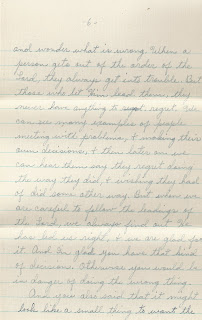 -6-
and wonder what is wrong. When a
person gets out of the order of the
Lord, they always get into trouble. But
those who let Him lead them, they
never have anything to regret. We
can see many examples of people
meeting with problems, & making their
own decisions, & then later on we
can hear them say they regret doing
the way they did, & wishing they had
of did some other way. But when we
are careful to follow the leadings of
the Lord, we always find out He
has led us right, & we are glad for
it. And I'm glad you have that kind
of decisions. Otherwise you would be
in danger of doing the wrong thing.
And you also said that it might
look like a small thing to want the